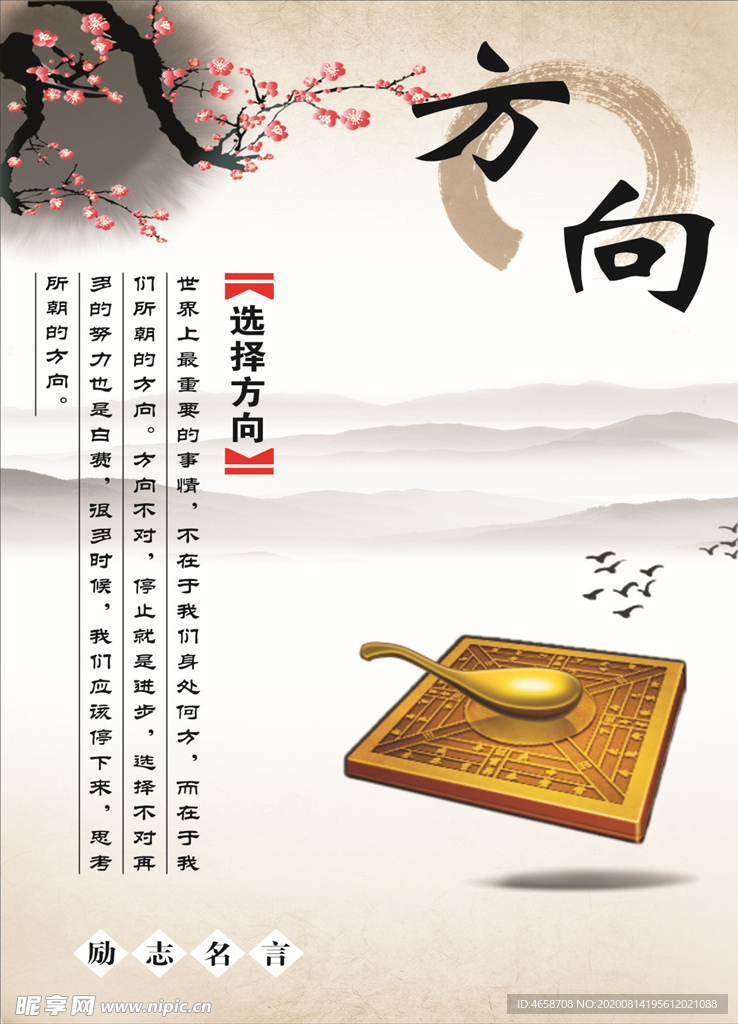 方向
选择方向
世界上最重要的事情，不在于我们身处何方，而在于我
们所朝的方向。方向不对，停止就是进步，选择不对再
多的努力也是白费，很多时候，我们应该停下来，思考
所朝的方向。
励志名言
昵享网 www.nipic.cn
ID:4658708 NO:20200814195612021088